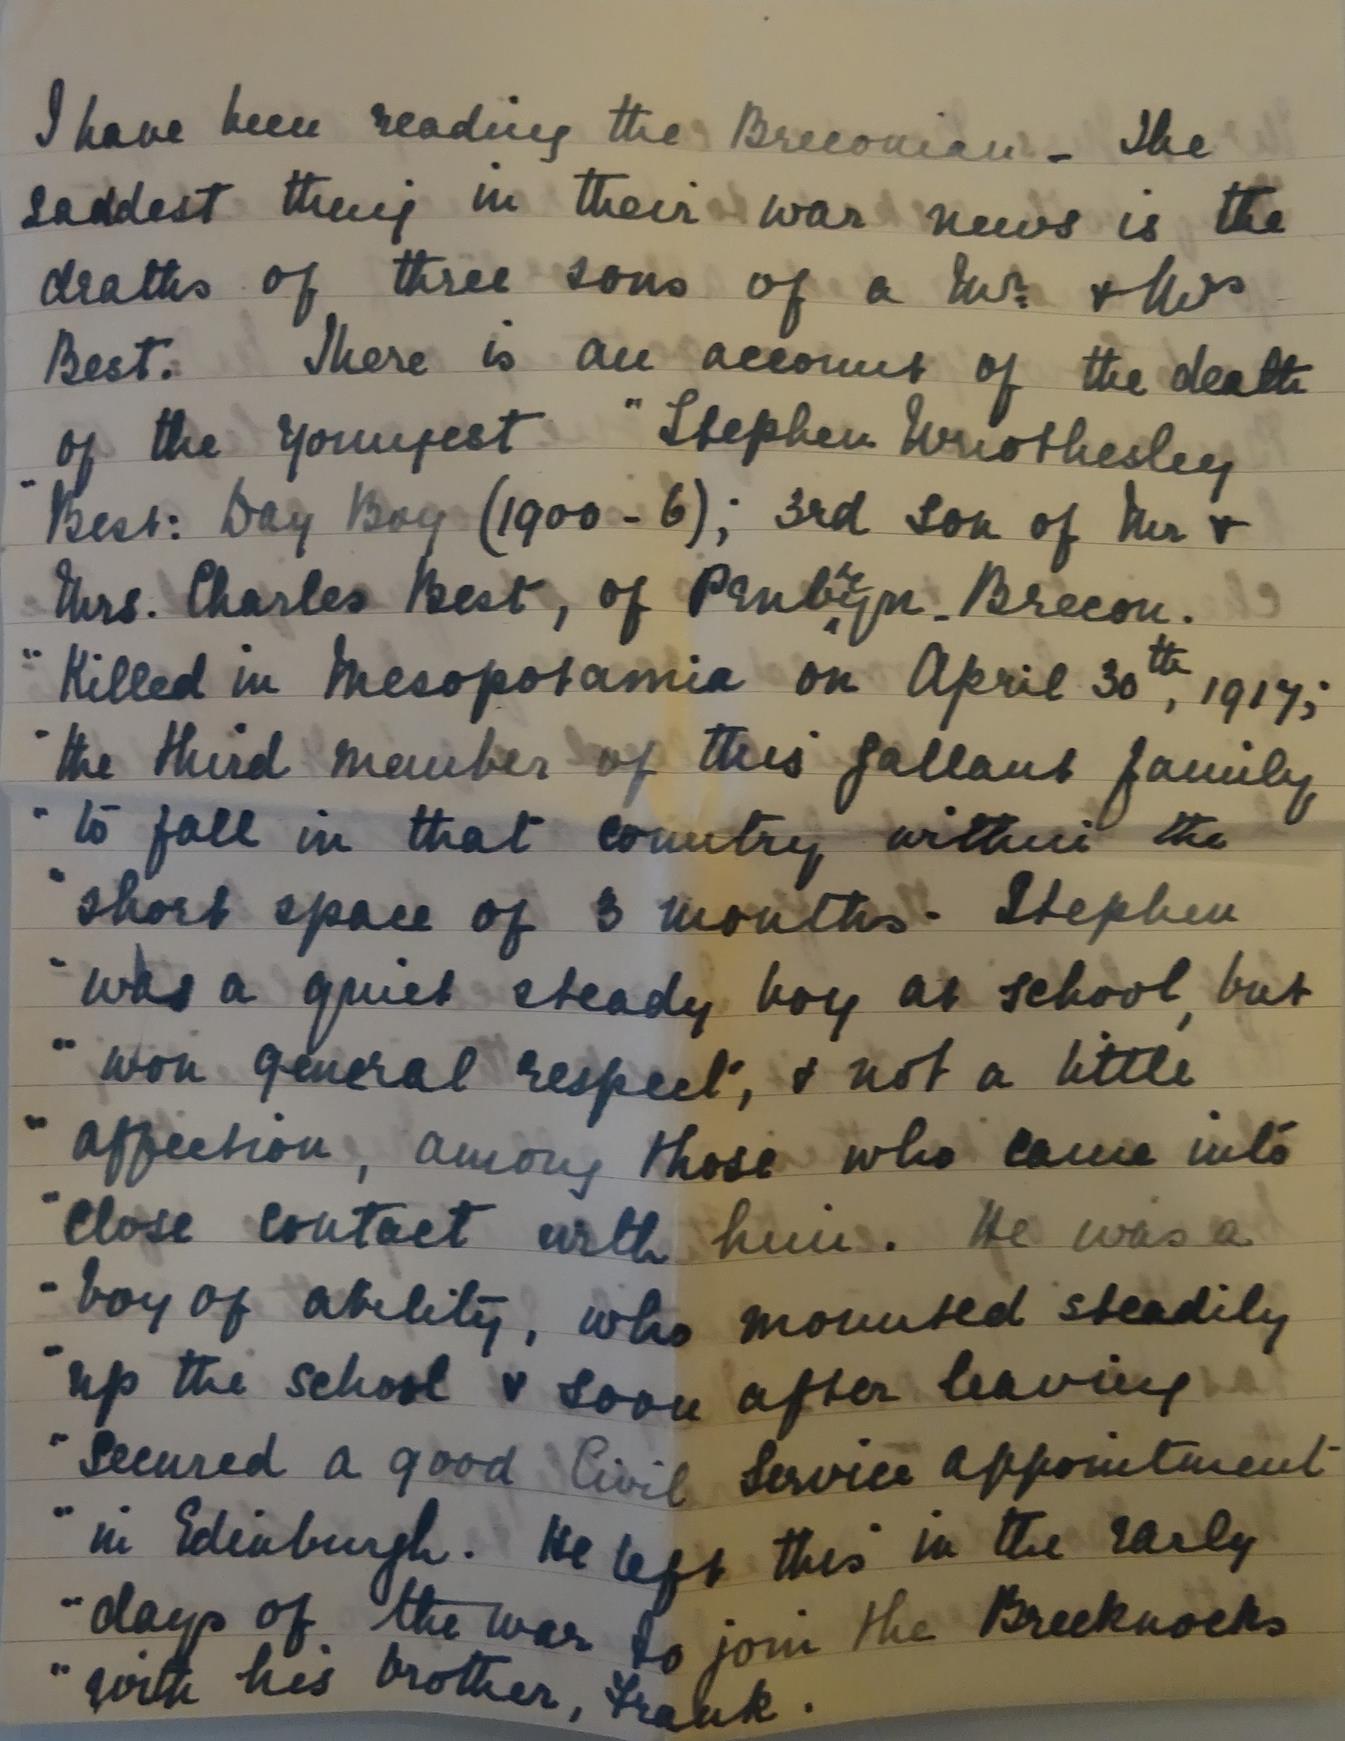 I have been reading the Breconian - The
saddest thing in their war news is the
deaths of three sons of a Mr. & Mrs
Best. There is an account of the death
of the youngest "Stephen Wriothesley
"Best: Day Boy (1900 - 6); 3rd son of Mr &
Mrs. Charles Best, of Penbryn - Brecon.
"Killed in Mesopotamia on April 30th, 1917;
"the third member of this gallant family
"to fall in that country within the
"short space of 3 months. Stephen
"was a quiet steady boy at school, but
"won general respect, & not a little
"affection, among those who came into
"close contact with him. He was a
"boy of ability, who mounted steadily
"up the school & soon after leaving
"secured a good Civil Service appointment
"in Edinburgh. He left this in the early
"days of the war to join the Brecknocks
"with his brother, Frank.